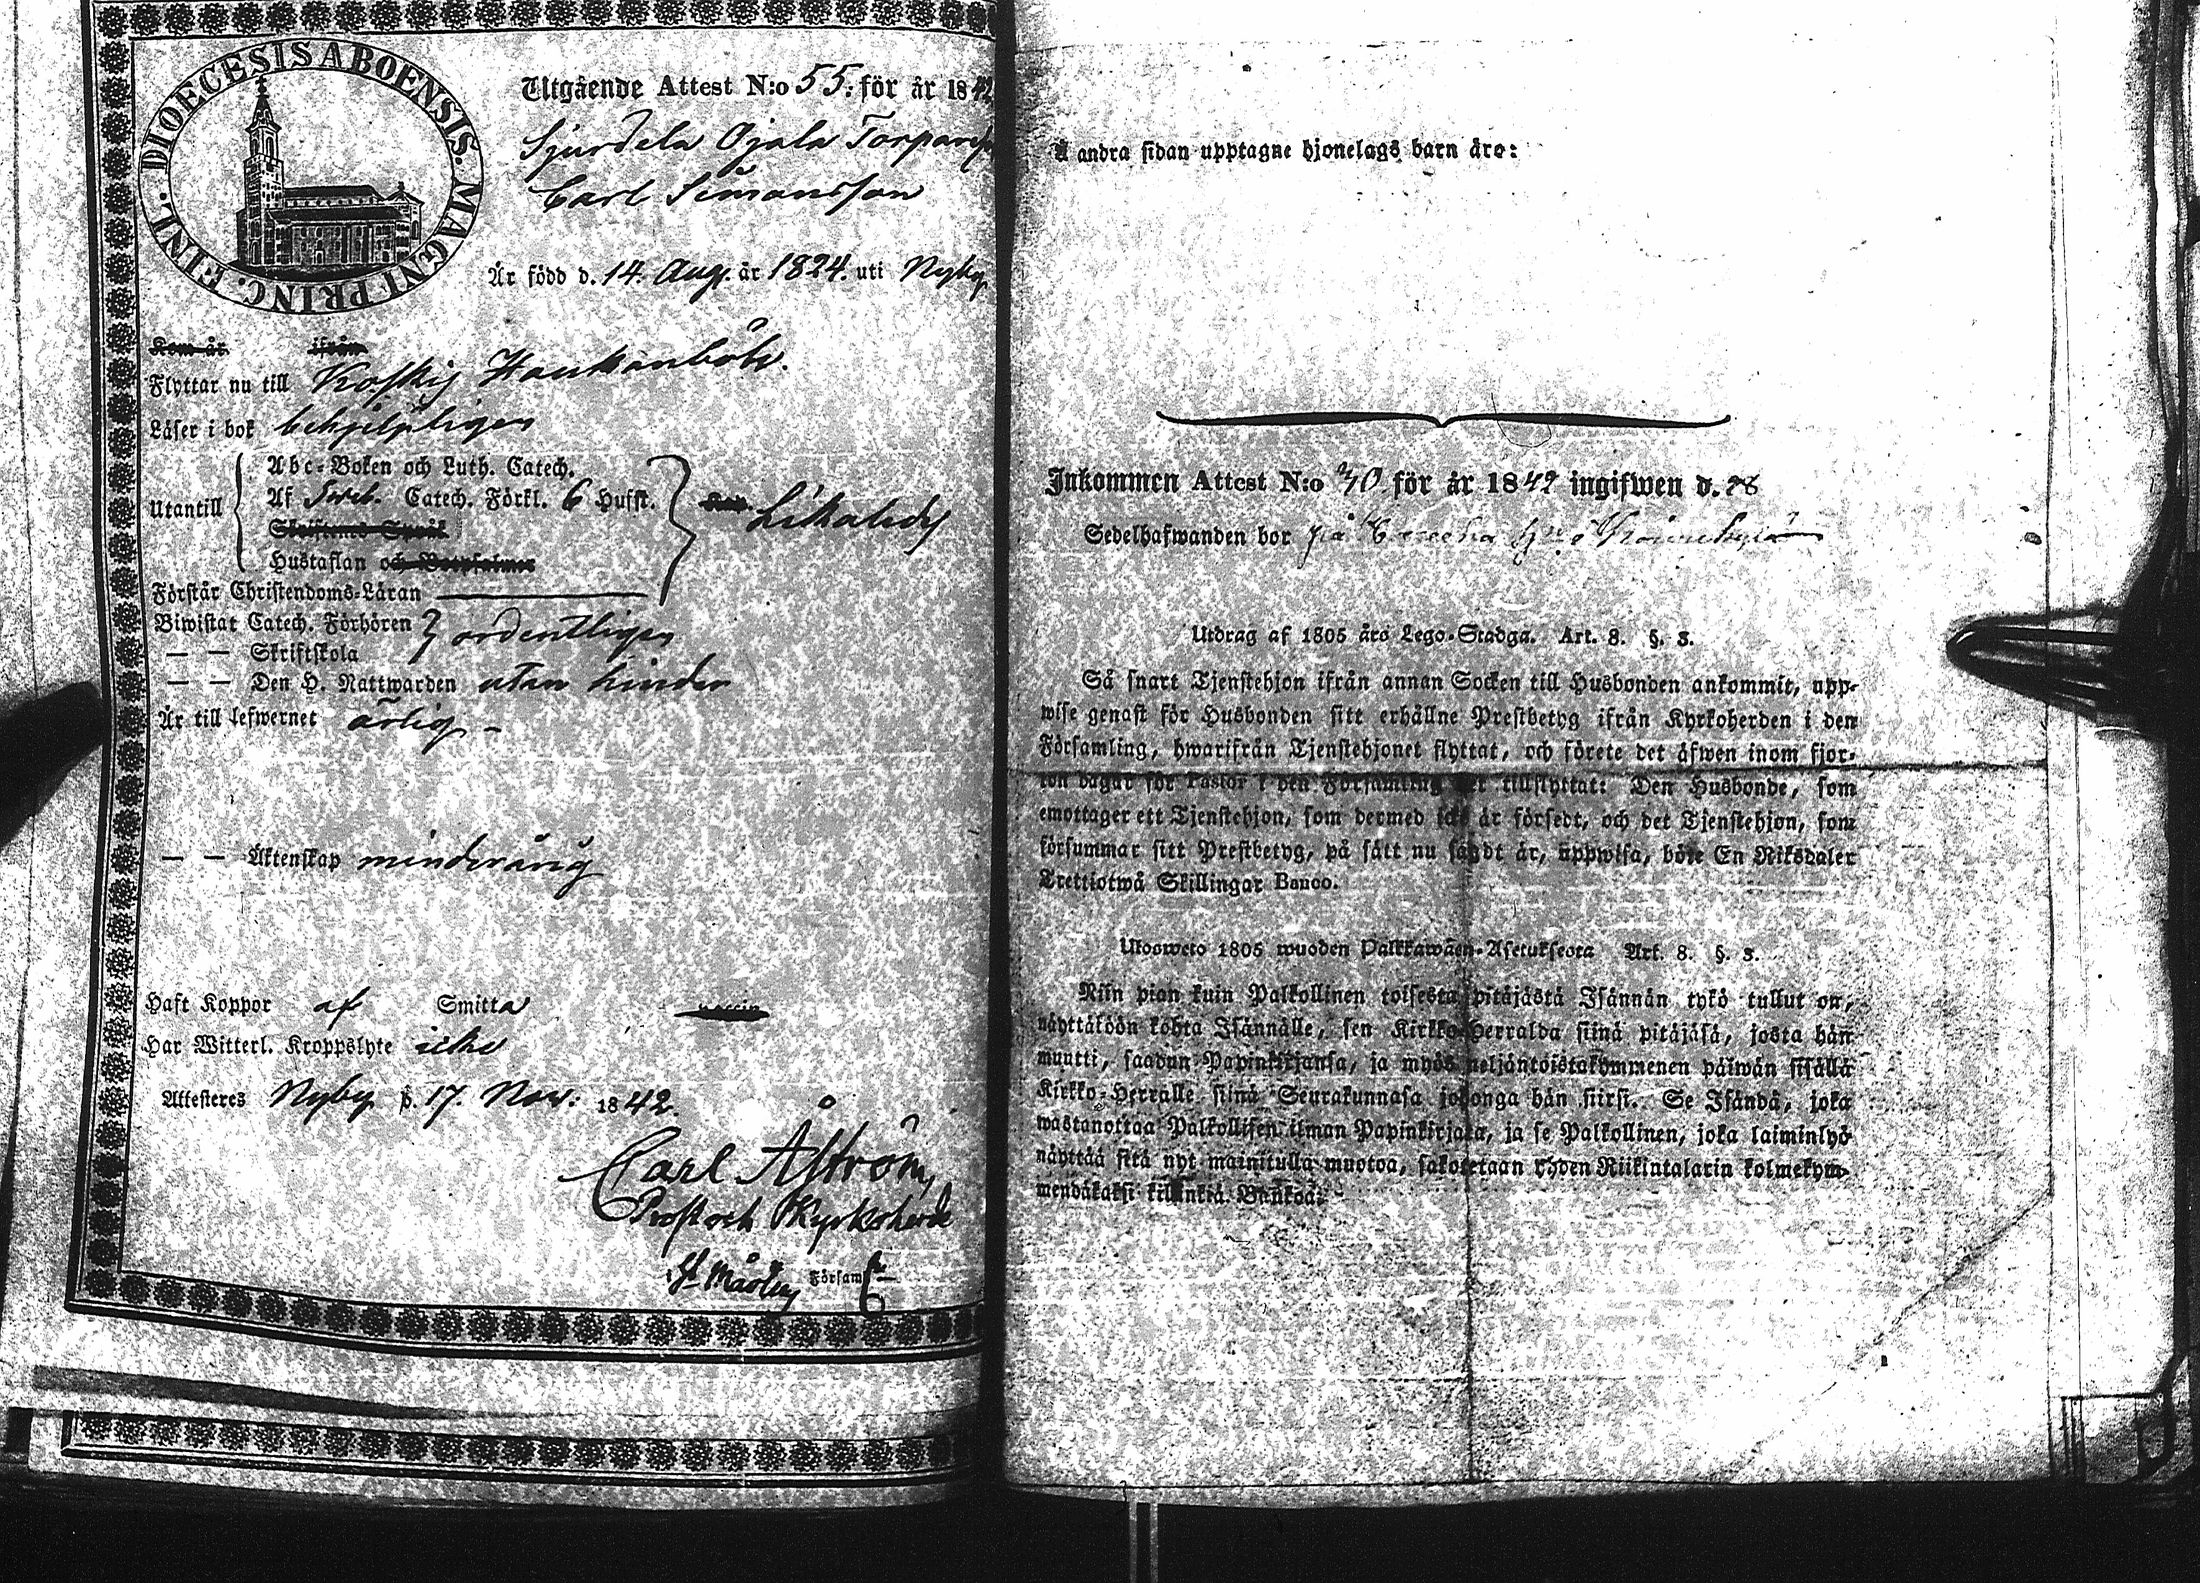 DIOECESIS ABOENSIS. MAGNI PRINC. FINL.
Utgående Attest N:o 55. för år 1842
Sjurdela Ojala Torpare
Carl Simonsson
Är född d. 14. Aug. år 1824. uti Nyby
Kom år ifrån
Flyttar nu till Koskis
Läser i bok behjelpligen
Utantill
Abc-Boken och Luth. Catech.
Af Sveb. Catech. Förkl. 6 Hufst.
Hustaflan och
Likaledes
Förstår Christendoms-Läran
Biwistat Catech. Förhören
— — Skriftskola
ordentligen
— — Den H. Nattwarden utan hinder
Är till lefwernet ärlig
— — Äktenskap minderårig
Haft Koppor af Smitta
Har Witterl. Kroppslyte icke
Attesteres Nyby d. 17. Nov: 1842.
Carl Åström,
Prost och Kyrkoherde
St Mårtens Församl
Å andra sidan upptagne hjonelags barn äro:
Inkommen Attest N:o 40 för år 1842 ingifwen d. 28
Sedelhafwanden bor på
Utdrag af 1805 års Lego-Stadga. Art. 8. §. 3.
Så snart Tjenstehjon ifrån annan Socken till Husbonden ankommit, upp-
wise genast för Husbonden sitt erhållne Prestbetyg ifrån Kyrkoherden i den
Församling, hwarifrån Tjenstehjonet flyttat, och förete det äfwen inom fjor-
ton dagar för Pastor i den Församling det tillflyttat: Den Husbonde, som
emottager ett Tjenstehjon, som dermed icke är försedt, och det Tjenstehjon, som
försummar sitt Prestbetyg, på sätt nu sagdt är, uppwisa, böte En Riksdaler
Trettiotwå Skillingar Banco.
Ulosweto 1805 wuoden Palkkawäen-Asetuksesta Art. 8. §. 3.
Niin pian kuin Palkollinen toisesta pitäjästä Isännän tykö tullut on,
näyttäköön kohta Isännälle, sen Kirkko-Herralda siinä pitäjäsä, josta hän
muutti, saadun Papinkirjansa, ja myös neljäntoistakymmenen päiwän sisällä
Kirkko-Herralle siinä Seurakunnasa johonga hän siirsi. Se Isändä, joka
wastanottaa Palkollisen ilman Papinkirjata, ja se Palkollinen, joka laiminlyö
näyttää sitä nyt mainitulla muotoa, sakotetaan yhden Riikintalarin kolmekym-
mendäkaksi killinkiä Bankoa.